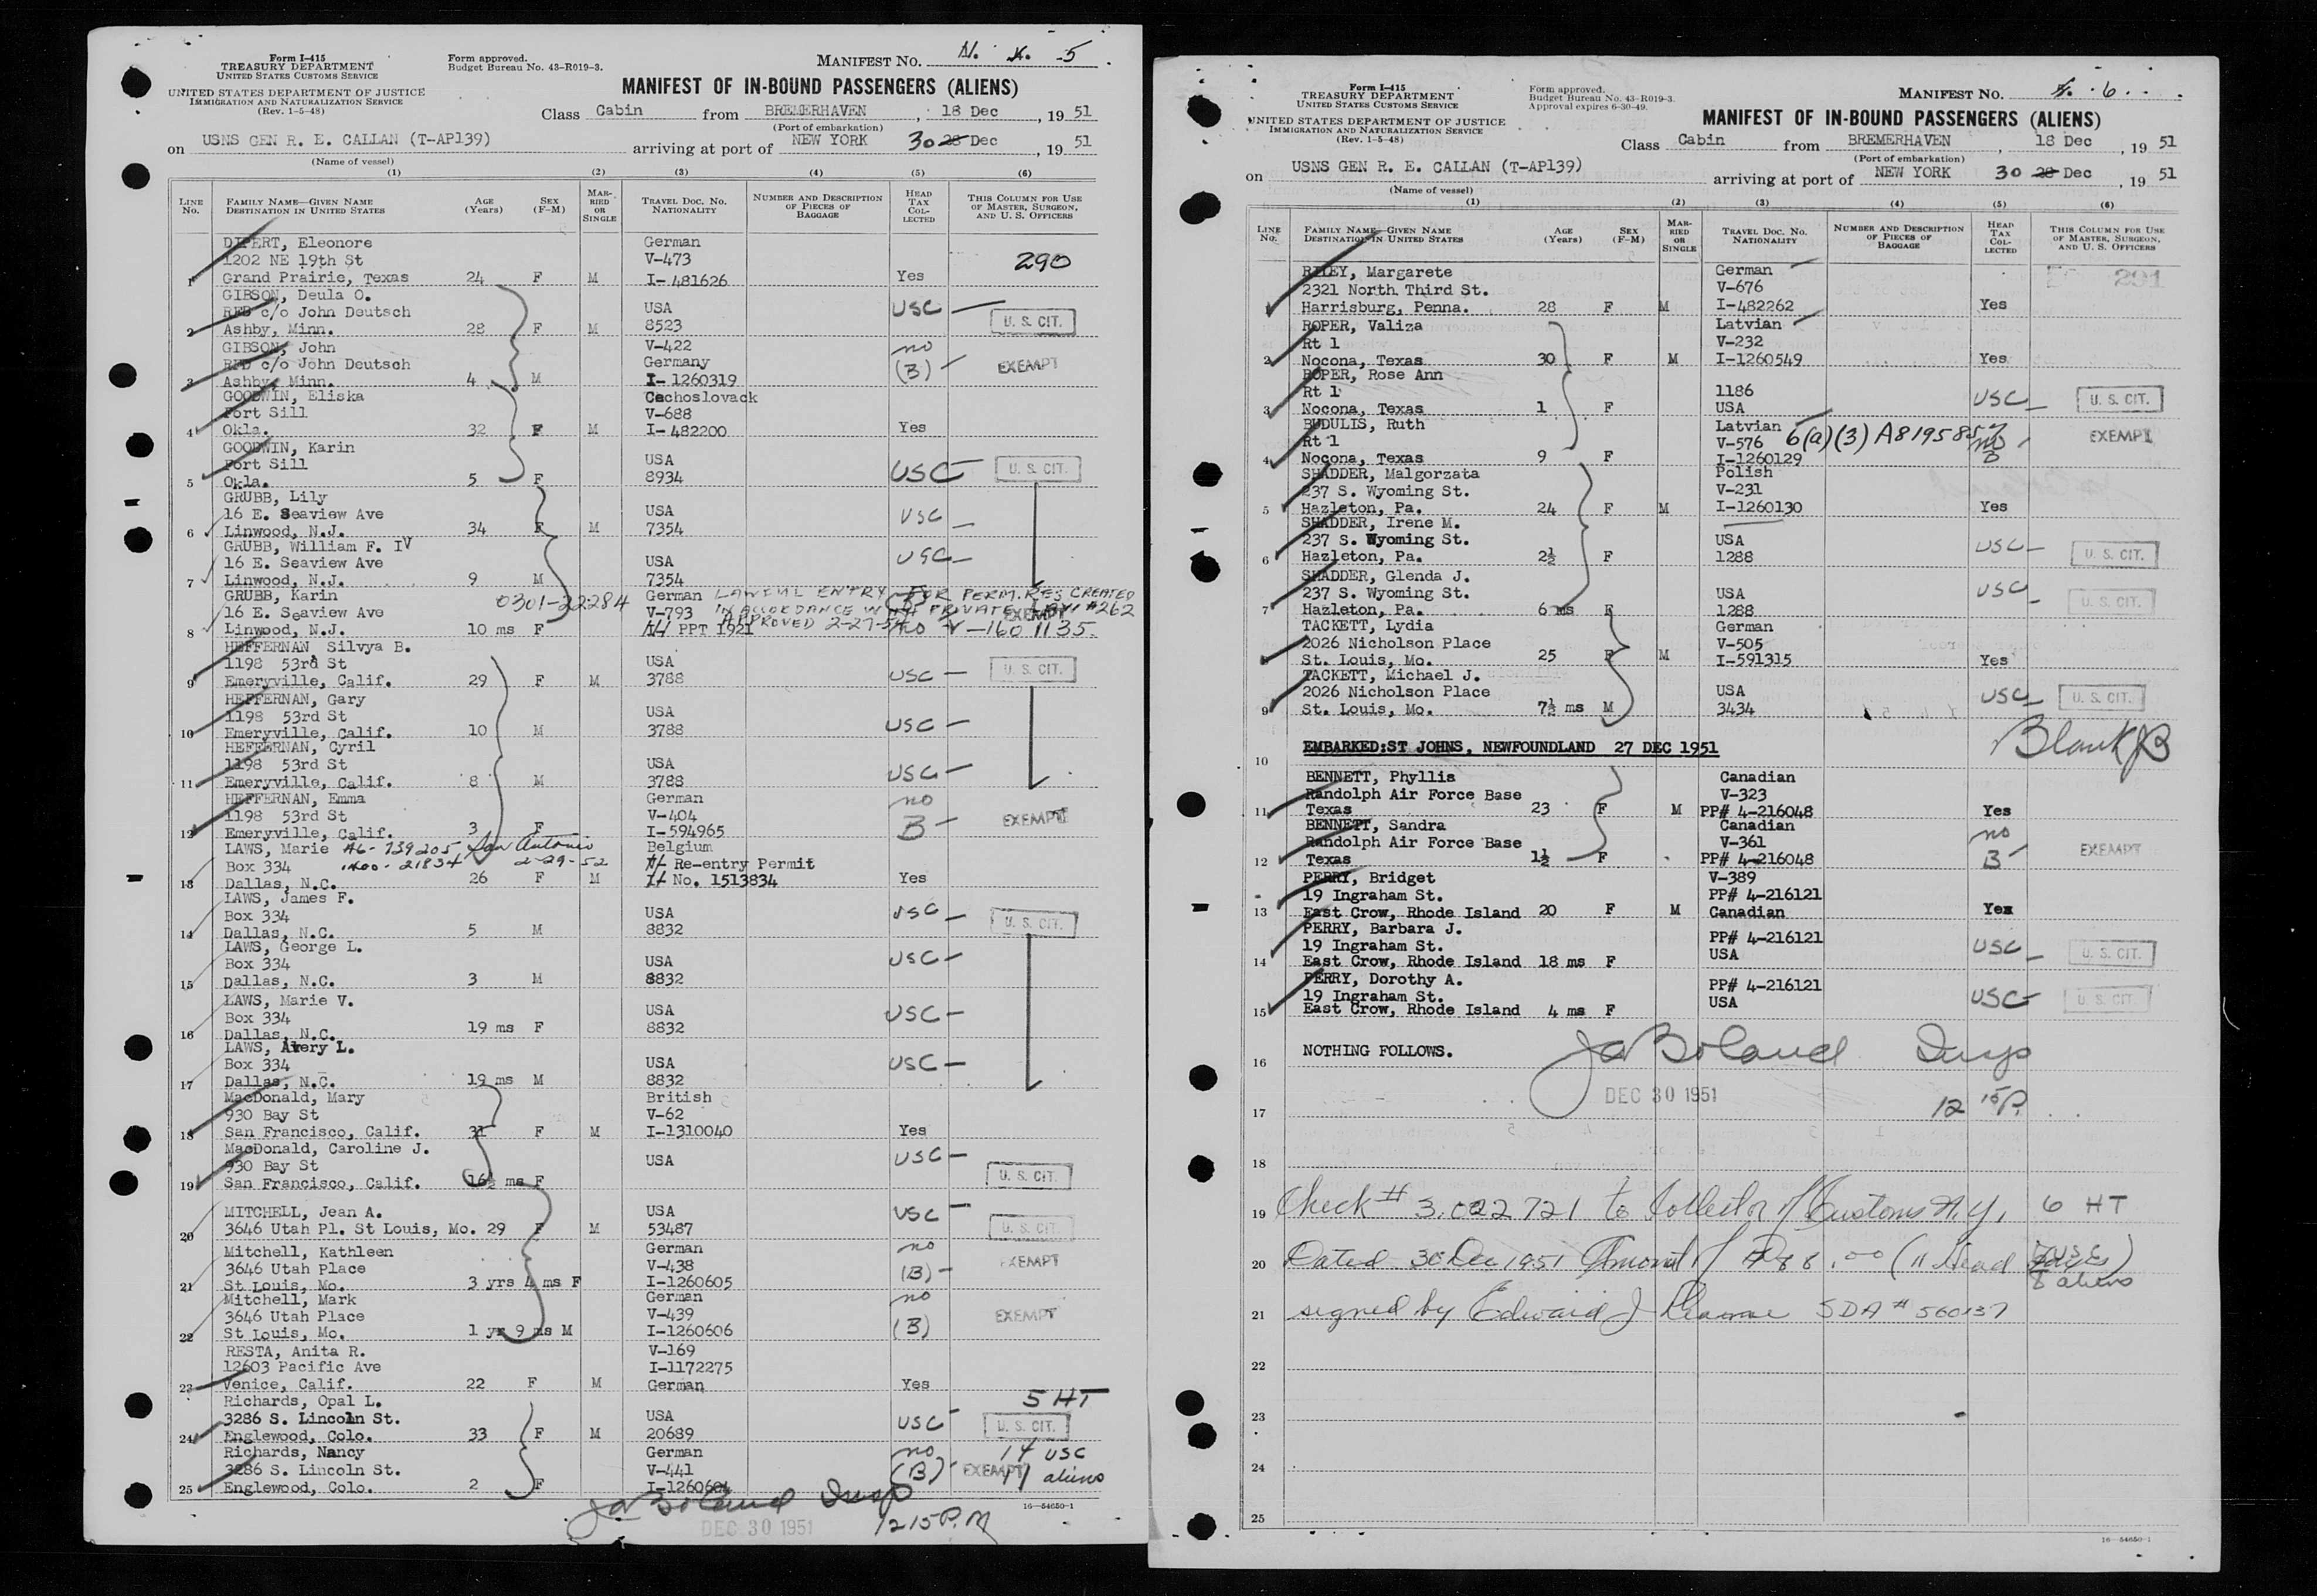 Form I-415
TREASURY DEPARTMENT
UNITED STATES CUSTOMS SERVICE
UNITED STATES DEPARTMENT OF JUSTICE
IMMIGRATION AND NATURALIZATION SERVICE
(Rev. 1-5-48)
Form approved.
Budget Bureau No. 43-R019-3.
MANIFEST NO. 5
MANIFEST OF IN-BOUND PASSENGERS (ALIENS)
Class Cabin from BREMERHAVEN, 18 Dec, 1951
(Port of embarkation)
on USNS GEN R. E. CALLAN (T-AP139) arriving at port of NEW YORK 30 28 Dec, 1951
(Name of vessel)
(1) (2) (3) (4) (5) (6)
LINE No. FAMILY NAME—GIVEN NAME DESTINATION IN UNITED STATES AGE (Years) SEX (F-M) MARRIED OR SINGLE TRAVEL DOC. NO. NATIONALITY NUMBER AND DESCRIPTION OF PIECES OF BAGGAGE HEAD TAX COLLECTED THIS COLUMN FOR USE OF MASTER, SURGEON, AND U. S. OFFICERS
DIPERT, Eleonore German
1202 NE 19th St V-473 290
1 Grand Prairie, Texas 24 F M I- 481626 Yes
GIBSON, Deula O.
RFD c/o John Deutsch USA USC
2 Ashby, Minn. 28 F M 8523 U. S. CIT.
GIBSON, John V-422 no
RFD c/o John Deutsch Germany (B) EXEMPT
3 Ashby, Minn. 4 M I- 1260319
GOODWIN, Eliska Cechoslovack
Fort Sill V-688
4 Okla. 32 F M I- 482200 Yes
GOODWIN, Karin
Fort Sill USA
5 Okla. 5 F 8934 USC U. S. CIT.
GRUBB, Lily
16 E. Seaview Ave USA USC
6 Linwood, N.J. 34 F M 7354
GRUBB, William F. IV
16 E. Seaview Ave USA USC
7 Linwood, N.J. 9 M 7354
GRUBB, Karin 0301-22284 German LAWFUL ENTRY FOR PERM. RES CREATED
16 E. Seaview Ave V-793 IN ACCORDANCE WITH PRIVATE LAW #262 EXEMPT
8 Linwood, N.J. 10 ms F PPT 1921 APPROVED 2-27-54 no V-1601135
HEFFERNAN, Silvya B.
1198 53rd St USA
9 Emeryville, Calif. 29 F M 3788 USC U. S. CIT.
HEFFERNAN, Gary
1198 53rd St USA
10 Emeryville, Calif. 10 M 3788 USC
HEFFERNAN, Cyril
1198 53rd St USA
11 Emeryville, Calif. 8 M 3788 USC
HEFFERNAN, Emma German no
1198 53rd St V-404
12 Emeryville, Calif. 3 F I-594965 B EXEMPT
LAWS, Marie A6-739205 San Antonio Belgium
Box 334 1400-21834 2-29-52 Re-entry Permit
13 Dallas, N.C. 26 F M No. 1513834 Yes
LAWS, James F.
Box 334 USA USC
14 Dallas, N.C. 5 M 8832 U. S. CIT.
LAWS, George L.
Box 334 USA USC
15 Dallas, N.C. 3 M 8832
LAWS, Marie V.
Box 334 USA USC
16 Dallas, N.C. 19 ms F 8832
LAWS, Avery L.
Box 334 USA USC
17 Dallas, N.C. 19 ms M 8832
MacDonald, Mary British
930 Bay St V-62
18 San Francisco, Calif. 31 F M I-1310040 Yes
MacDonald, Caroline J.
930 Bay St USA USC
19 San Francisco, Calif. 16½ ms F U. S. CIT.
MITCHELL, Jean A. USA USC
20 3646 Utah Pl. St Louis, Mo. 29 F M 53487 U. S. CIT.
Mitchell, Kathleen German no
3646 Utah Place V-438 EXEMPT
21 St Louis, Mo. 3 yrs 4 ms F I-1260605 (B)
Mitchell, Mark German no
3646 Utah Place V-439 EXEMPT
22 St Louis, Mo. 1 yr 9 ms M I-1260606 (B)
RESTA, Anita R. V-169
12603 Pacific Ave I-1172275
23 Venice, Calif. 22 F M German Yes
Richards, Opal L. 5 HT
3286 S. Lincoln St. USA USC
24 Englewood, Colo. 33 F M 20689 U. S. CIT.
Richards, Nancy German no 14 USC
3286 S. Lincoln St. V-441 (B) EXEMPT 11 aliens
25 Englewood, Colo. 2 F I-1260604
J A Boland Insp
DEC 30 1951 1215 P.M
16—54650-1
Form I-415
TREASURY DEPARTMENT
UNITED STATES CUSTOMS SERVICE
UNITED STATES DEPARTMENT OF JUSTICE
IMMIGRATION AND NATURALIZATION SERVICE
(Rev. 1-5-48)
Form approved.
Budget Bureau No. 43-R019-3.
Approval expires 6-30-49.
MANIFEST NO. 6
MANIFEST OF IN-BOUND PASSENGERS (ALIENS)
Class Cabin from BREMERHAVEN, 18 Dec, 1951
(Port of embarkation)
on USNS GEN R. E. CALLAN (T-AP139) arriving at port of NEW YORK 30 28 Dec, 1951
(Name of vessel)
(1) (2) (3) (4) (5) (6)
LINE No. FAMILY NAME—GIVEN NAME DESTINATION IN UNITED STATES AGE (Years) SEX (F-M) MARRIED OR SINGLE TRAVEL DOC. NO. NATIONALITY NUMBER AND DESCRIPTION OF PIECES OF BAGGAGE HEAD TAX COLLECTED THIS COLUMN FOR USE OF MASTER, SURGEON, AND U. S. OFFICERS
RILEY, Margarete German 291
2321 North Third St. V-676
1 Harrisburg, Penna. 28 F M I-482262 Yes
ROPER, Valiza Latvian
Rt 1 V-232
2 Nocona, Texas 30 F M I-1260549 Yes
ROPER, Rose Ann
Rt 1 1186
3 Nocona, Texas 1 F USA USC U. S. CIT.
BUDULIS, Ruth Latvian
Rt 1 V-576 6(a)(3) A8195857 no EXEMPT
4 Nocona, Texas 9 F I-1260129 B
SHADDER, Malgorzata Polish
237 S. Wyoming St. V-231
5 Hazleton, Pa. 24 F M I-1260130 Yes
SHADDER, Irene M.
237 S. Wyoming St. USA USC
6 Hazleton, Pa. 2½ F 1288 U. S. CIT.
SHADDER, Glenda J.
237 S. Wyoming St. USA USC
7 Hazleton, Pa. 6 ms F 1288 U. S. CIT.
TACKETT, Lydia German
2026 Nicholson Place V-505
8 St. Louis, Mo. 25 F M I-591315 Yes
TACKETT, Michael J.
2026 Nicholson Place USA
9 St. Louis, Mo. 7½ ms M 3434 USC U. S. CIT.
10 EMBARKED: ST JOHNS, NEWFOUNDLAND 27 DEC 1951 Blank JB
BENNETT, Phyllis Canadian
Randolph Air Force Base V-323
11 Texas 23 F M PP# 4-216048 Yes
BENNETT, Sandra Canadian no
Randolph Air Force Base V-361
12 Texas 1½ F PP# 4-216048 B EXEMPT
PERRY, Bridget V-389
19 Ingraham St. PP# 4-216121
13 East Crow, Rhode Island 20 F M Canadian Yes
PERRY, Barbara J.
19 Ingraham St. PP# 4-216121
14 East Crow, Rhode Island 18 ms F USA USC U. S. CIT.
PERRY, Dorothy A. PP# 4-216121
19 Ingraham St. USA USC U. S. CIT.
15 East Crow, Rhode Island 4 ms F
16 NOTHING FOLLOWS. J A Boland Insp
DEC 30 1951 12 15 P.
17
18
19 Check # 3,022721 to Collector of Customs N.Y. 6 HT
20 Dated 30 Dec 1951 Amount of $88.00 (11 Head 6 USC
8 aliens
21 signed by Edward J SDA # 560137
22
23
24
25
16—54650-1